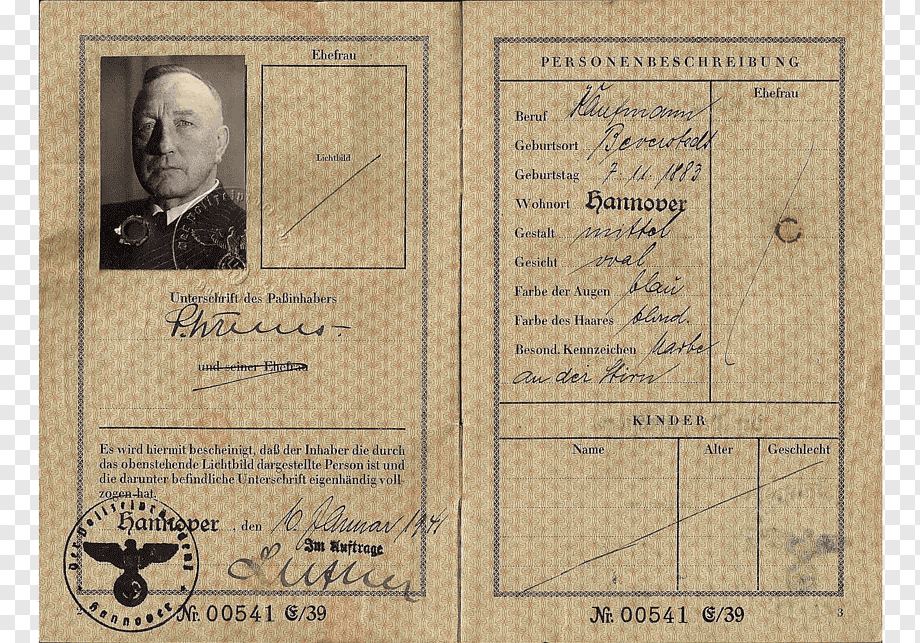 Ehefrau
Lichtbild
Unterschrift des Paßinhabers
und seiner Ehefrau
Es wird hiermit bescheinigt, daß der Inhaber die durch
das obenstehende Lichtbild dargestellte Person ist und
die darunter befindliche Unterschrift eigenhändig voll-
zogen hat.
Hannover, den 10. Januar 1941
Im Auftrage
Der Polizeipräsident
Hannover
Nr. 00541 E/39
PERSONENBESCHREIBUNG
Ehefrau
Beruf Kaufmann
Geburtsort Beverstedt
Geburtstag 7. 11. 1883
Wohnort Hannover
Gestalt mittel
Gesicht oval
Farbe der Augen blau
Farbe des Haares blond.
Besond. Kennzeichen Narbe
an der Stirn
KINDER
Name Alter Geschlecht
Nr. 00541 E/39
3